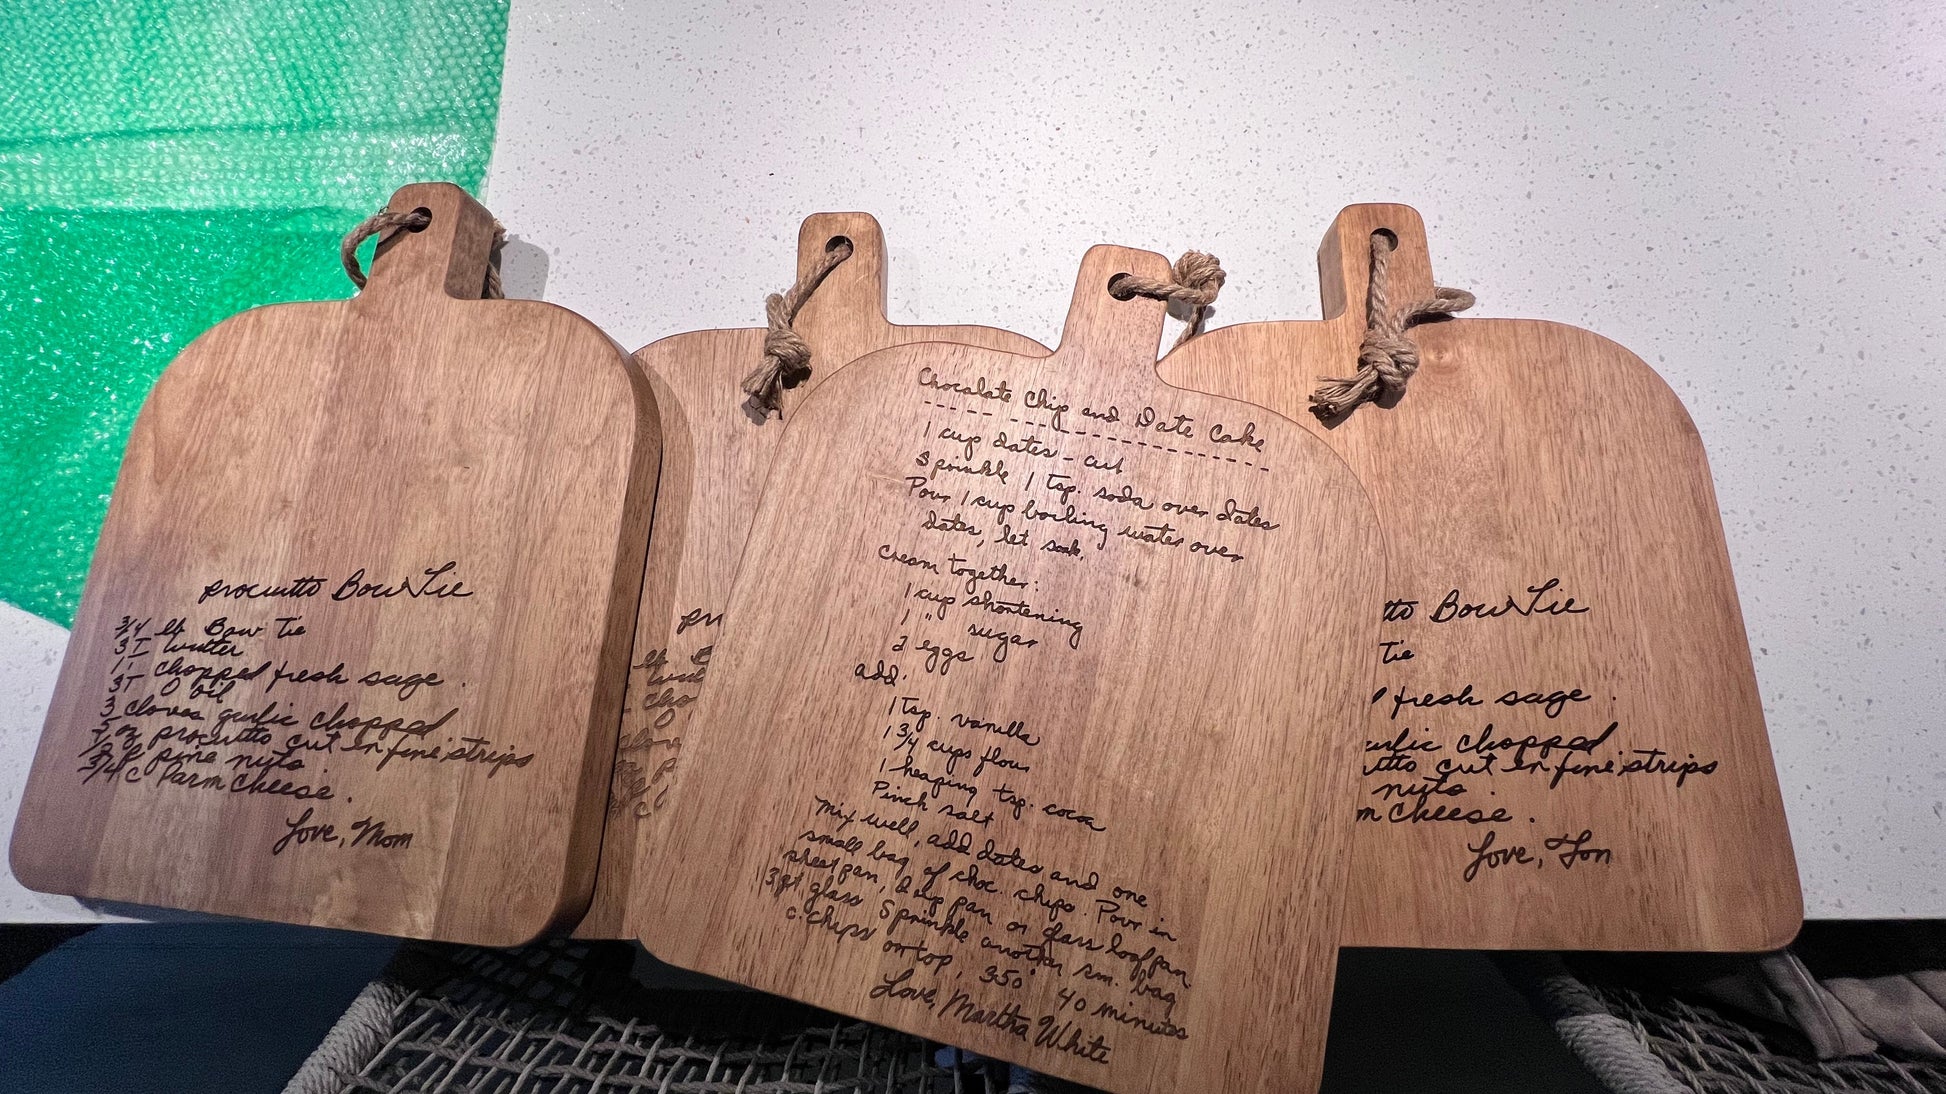 procuitto Bow Tie
3/4 lb Bow Tie
3T butter
1T chopped fresh sage.
3T O oil
3 cloves garlic chopped
5 oz procuitto cut in fine strips
pine nuts
3/4 c Parm Cheese.
Love, Mom
pr
lb B
butt
cho
O
clove
oz p
c
Chocolate Chip and Date Cake
1 cup dates - cut
Sprinkle 1 tsp. soda over dates
Pour 1 cup boiling water over
dates, let soak.
Cream together:
1 cup shortening
1 " sugar
2 eggs
add:
1 tsp. vanilla
1 3/4 cups flour
1 heaping tsp. cocoa
Pinch salt
Mix well, add dates and one
small bag of choc. chips. Pour in
sheet pan, 2 layer pan or glass loaf pan.
3 qt glass Sprinkle another sm. bag
c. chips on top, 350° 40 minutes
Love, Martha White
tto Bow Tie
Tie
fresh sage.
arlic chopped
itto cut in fine strips
nuts
m Cheese.
Love, Jon